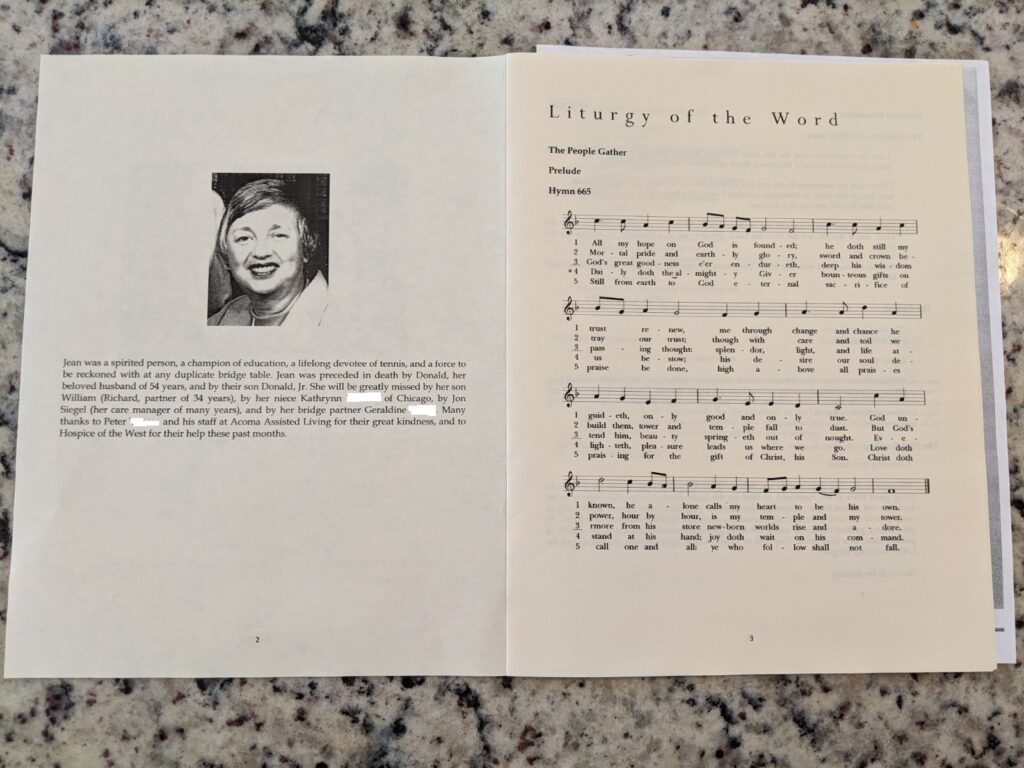 Jean was a spirited person, a champion of education, a lifelong devotee of tennis, and a force to
be reckoned with at any duplicate bridge table. Jean was preceded in death by Donald, her
beloved husband of 54 years, and by their son Donald, Jr. She will be greatly missed by her son
William (Richard, partner of 34 years), by her niece Kathrynn of Chicago, by Jon
Siegel (her care manager of many years), and by her bridge partner Geraldine . Many
thanks to Peter and his staff at Acoma Assisted Living for their great kindness, and to
Hospice of the West for their help these past months.
2
Liturgy of the Word
The People Gather
Prelude
Hymn 665
1 All my hope on God is found - ed; he doth still my
2 Mor - tal pride and earth - ly glo - ry, sword and crown be -
3 God's great good - ness e'er en - dur - eth, deep his wis - dom
*4 Dai - ly doth the al - might - y Giv - er boun - teous gifts on
5 Still from earth to God e - ter - nal sac - ri - fice of
1 trust re - new, me through change and chance he
2 tray our trust; though with care and toil we
3 pass - ing thought: splen - dor, light, and life at -
4 us be - stow; his de - sire our soul de -
5 praise be done, high a - bove all prais - es
1 guid - eth, on - ly good and on - ly true. God un -
2 build them, tower and tem - ple fall to dust. But God's
3 tend him, beau - ty spring - eth out of nought. Ev - e -
4 ligh - teth, plea - sure leads us where we go. Love doth
5 prais - ing for the gift of Christ, his Son. Christ doth
1 known, he a - lone calls my heart to be his own.
2 power, hour by hour, is my tem - ple and my tower.
3 rmore from his store new-born worlds rise and a - dore.
4 stand at his hand; joy doth wait on his com - mand.
5 call one and all: ye who fol - low shall not fall.
3